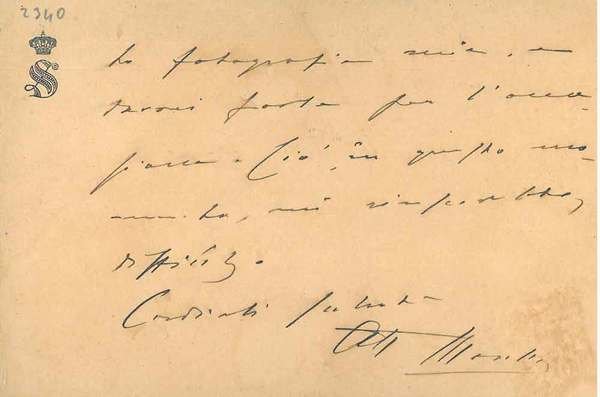 2340
S
la fotografia mia, e
dovrei farla per l'occa-
sione. Ciò, in questo mo-
mento, mi riescirebbe
difficile.
Cordiali saluti